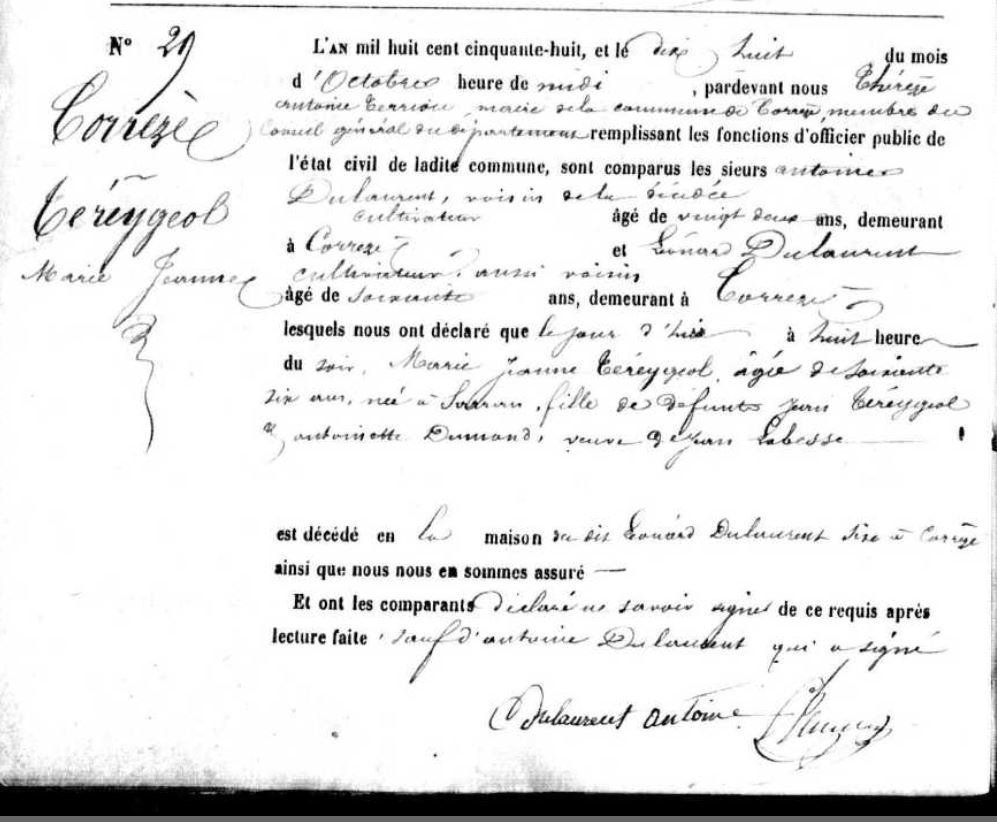 N° 29
Corrèze
Téreygeol
Marie Jeanne
L'AN mil huit cent cinquante-huit, et le dix huit du mois
d'Octobre heure de midi, pardevant nous
antoine Terriou, maire de la commune de Corrèze, membre du
Conseil général du département remplissant les fonctions d'officier public de
l'état civil de ladite commune, sont comparus les sieurs antoine
Dulaurent, voisin de la décédée
cultivateur âgé de vingt deux ans, demeurant
à Corrèze et Léonard Dulaurent
cultivateur, aussi voisin
âgé de soixante ans, demeurant à Corrèze
lesquels nous ont déclaré que le jour d'hier à huit heure
du soir, Marie Jeanne Téreygeol, âgée de soixante
six ans, née à Sarran, fille de défunts Jean Téreygeol
& antoinette Dumond, veuve de Jean Labesse
est décédé en la maison du dit Léonard Dulaurent sise à Corrèze
ainsi que nous nous en sommes assuré
Et ont les comparants déclaré ne savoir signer de ce requis après
lecture faite, sauf d'antoine Dulaurent qui a signé
Dulaurent antoine